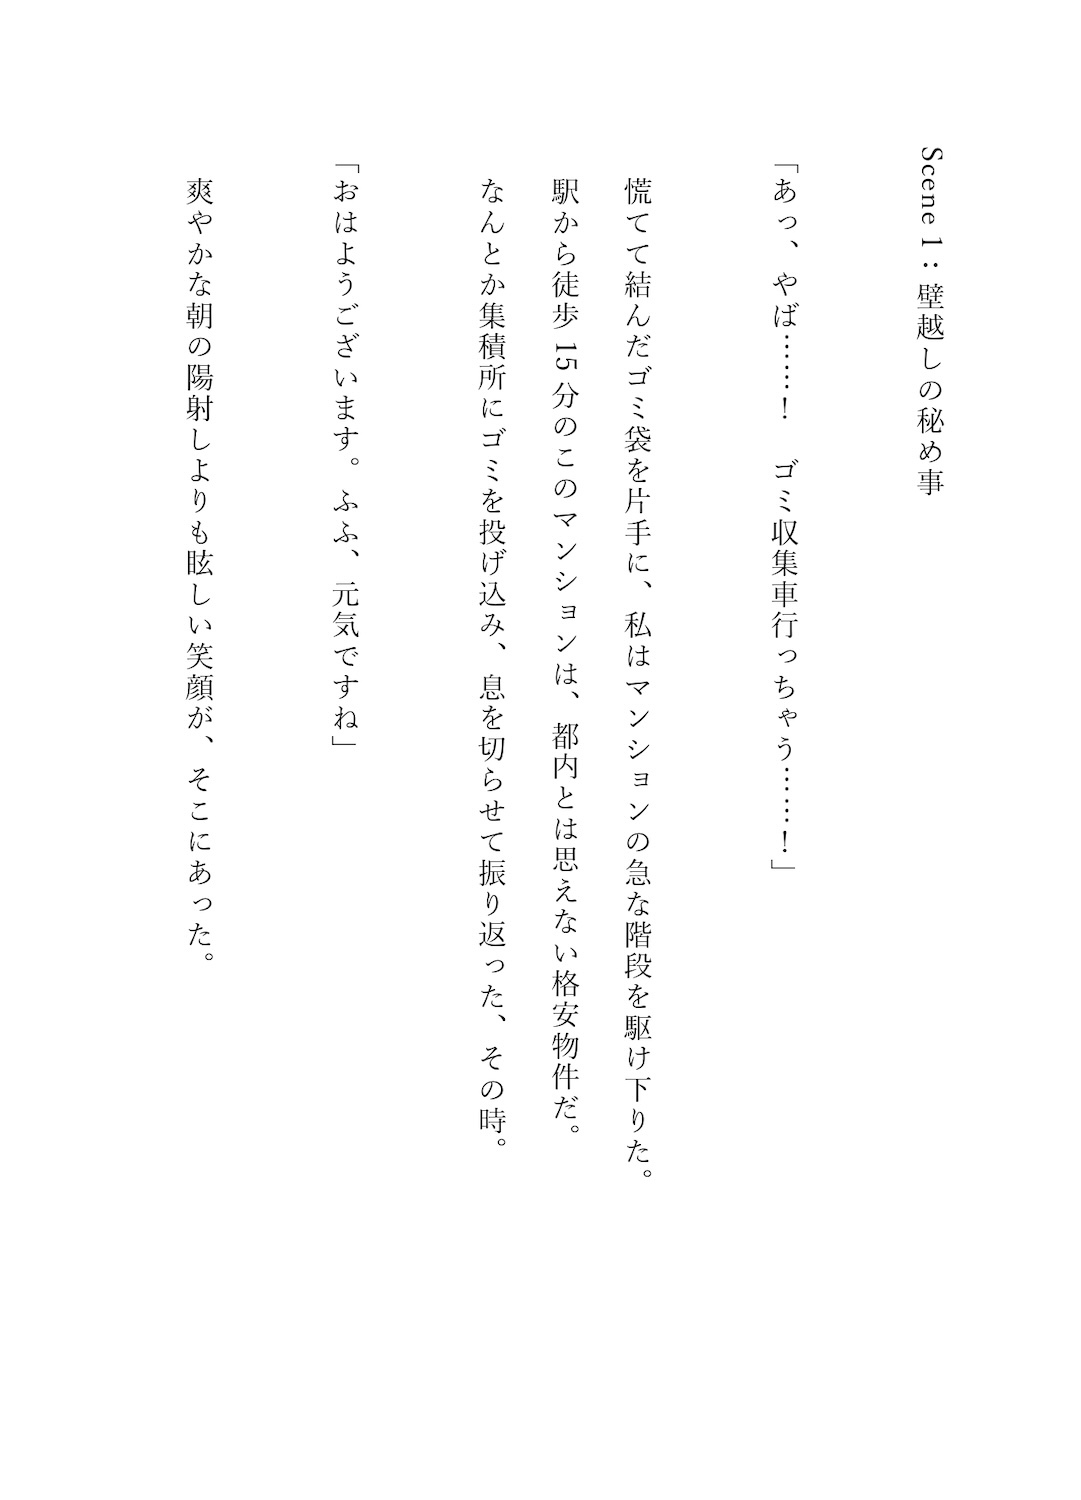 Scene 1：壁越しの秘め事
「あっ、やば……！　ゴミ収集車行っちゃう……！」
慌てて結んだゴミ袋を片手に、私はマンションの急な階段を駆け下りた。
駅から徒歩15分のこのマンションは、都内とは思えない格安物件だ。
なんとか集積所にゴミを投げ込み、息を切らせて振り返った、その時。
「おはようございます。ふふ、元気ですね」
爽やかな朝の陽射しよりも眩しい笑顔が、そこにあった。